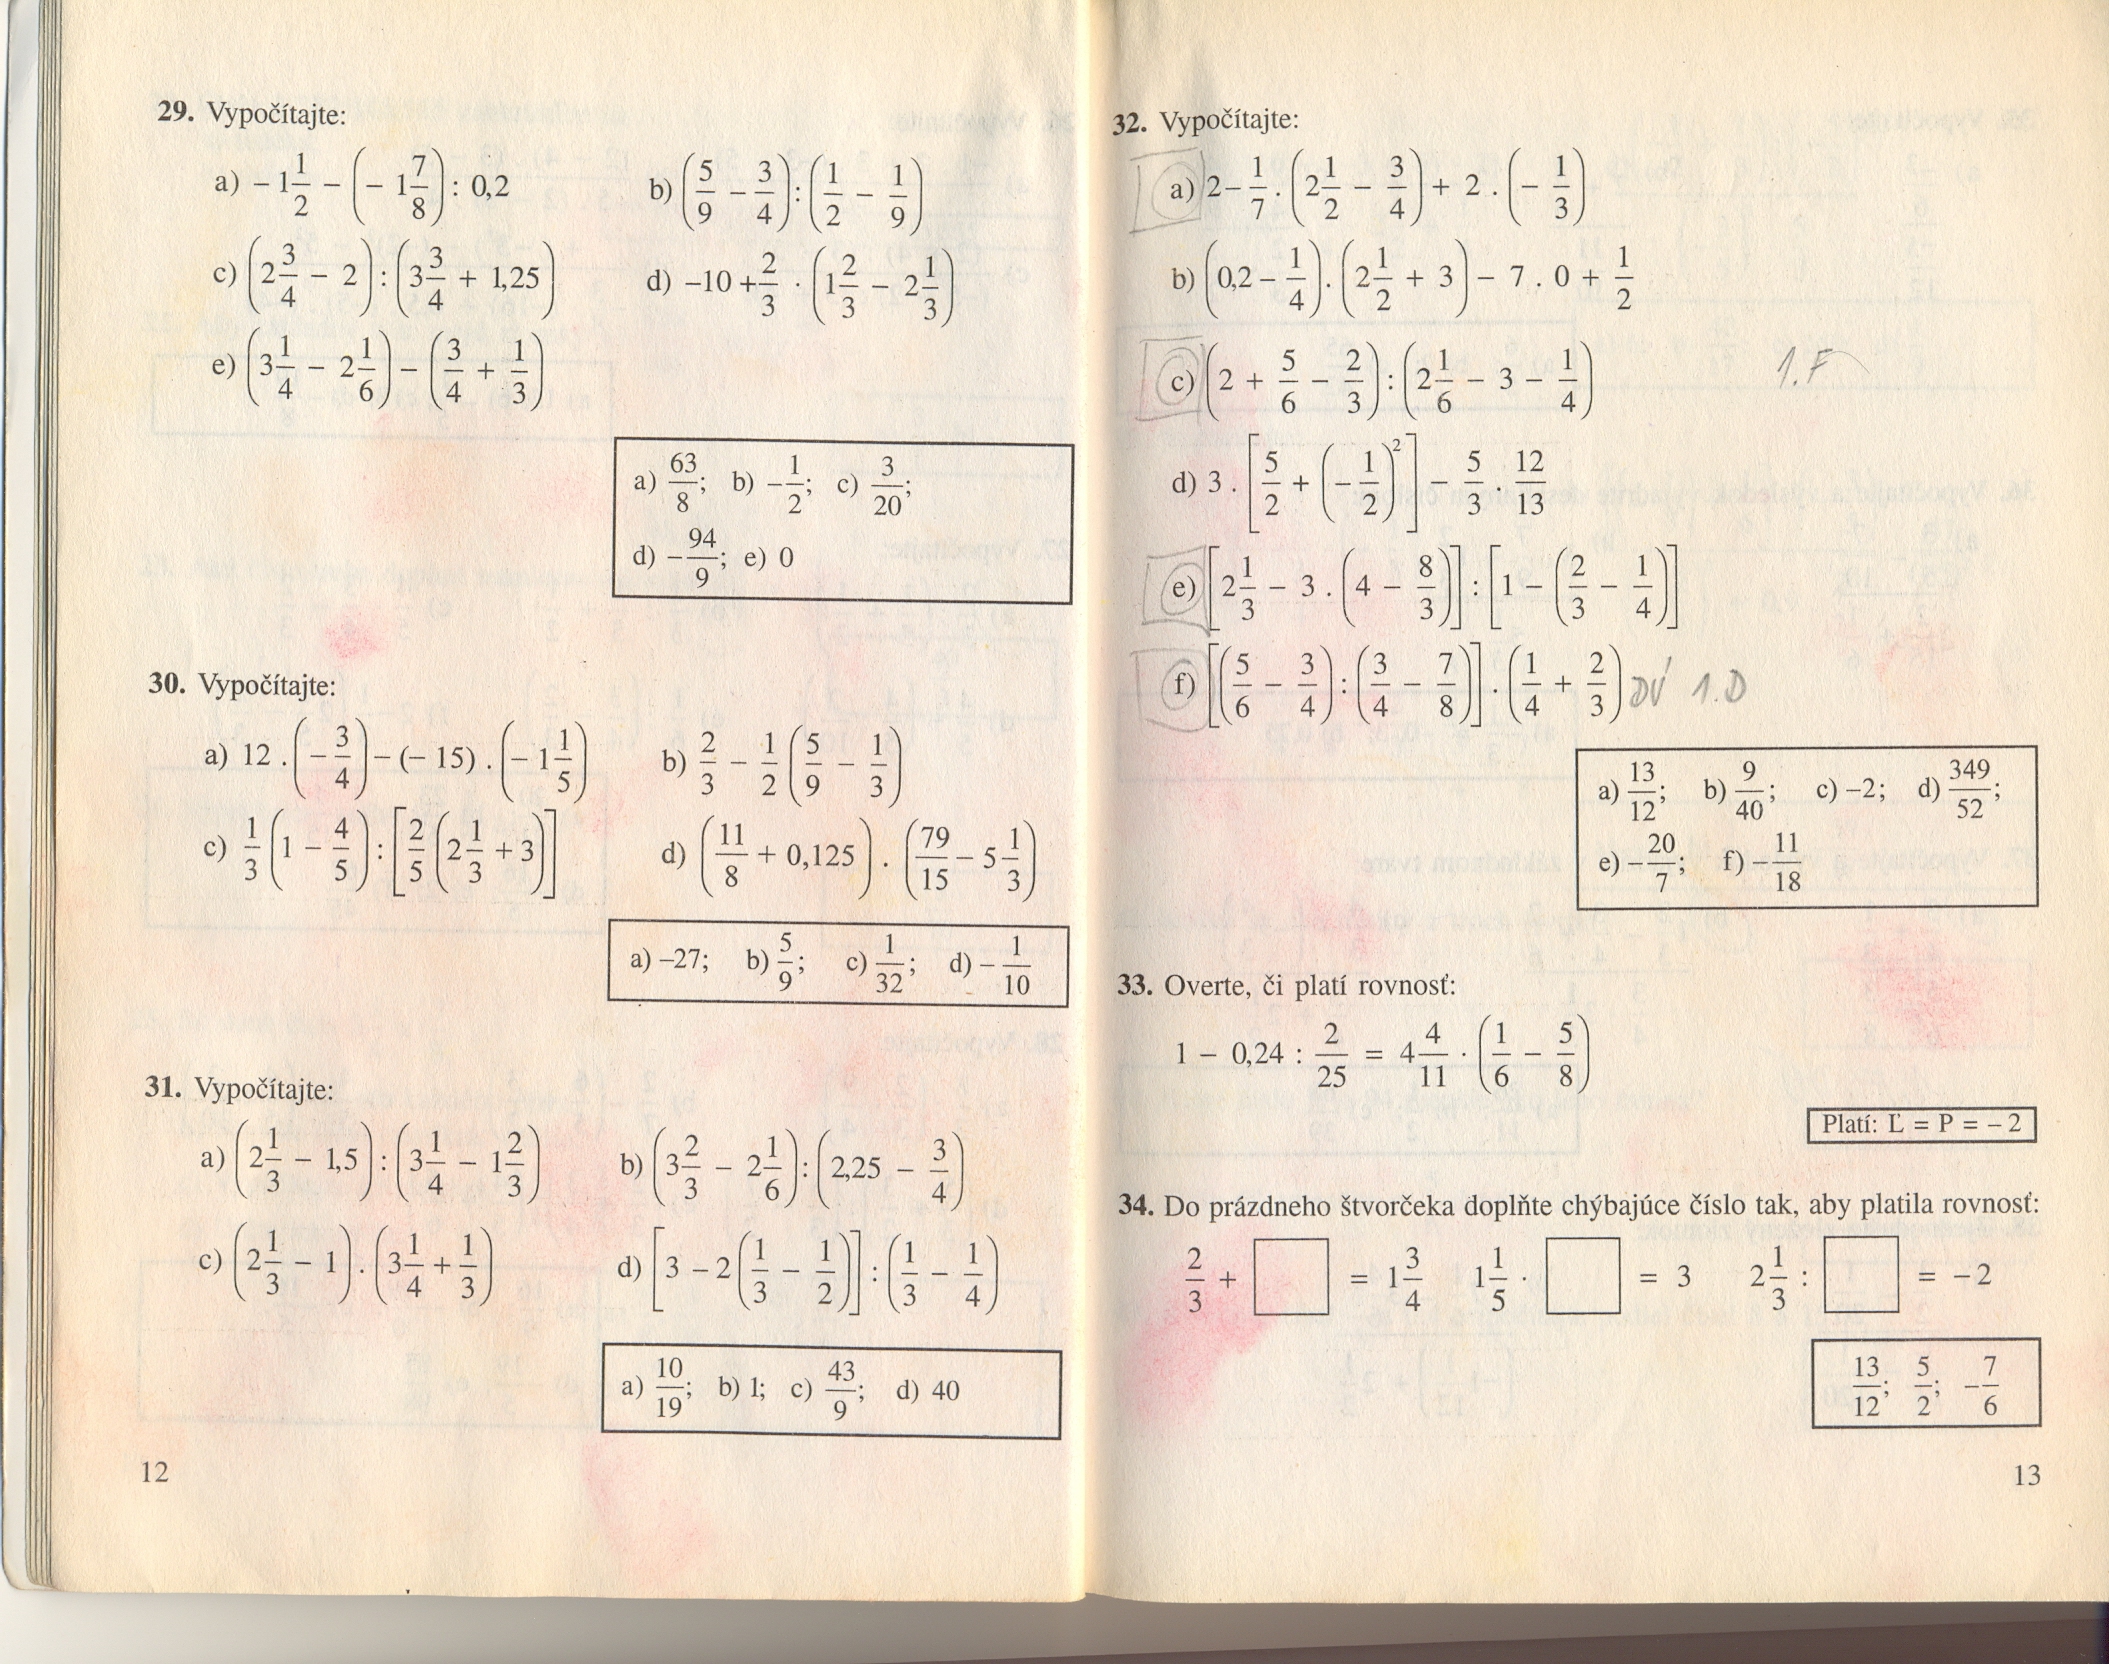 29. Vypočítajte:
a) – 1 1/2 – (– 1 7/8) : 0,2 b) (5/9 – 3/4) : (1/2 – 1/9)
c) (2 3/4 – 2) : (3 3/4 + 1,25) d) –10 + 2/3 · (1 2/3 – 2 1/3)
e) (3 1/4 – 2 1/6) – (3/4 + 1/3)
a) 63/8; b) – 1/2; c) 3/20;
d) – 94/9; e) 0
30. Vypočítajte:
a) 12 . (– 3/4) – (– 15) . (– 1 1/5) b) 2/3 – 1/2 (5/9 – 1/3)
c) 1/3 (1 – 4/5) : [2/5 (2 1/3 + 3)] d) (11/8 + 0,125) . (79/15 – 5 1/3)
a) –27; b) 5/9; c) 1/32; d) – 1/10
31. Vypočítajte:
a) (2 1/3 – 1,5) : (3 1/4 – 1 2/3) b) (3 2/3 – 2 1/6) : (2,25 – 3/4)
c) (2 1/3 – 1) . (3 1/4 + 1/3) d) [3 – 2 (1/3 – 1/2)] : (1/3 – 1/4)
a) 10/19; b) 1; c) 43/9; d) 40
12
32. Vypočítajte:
a) 2 – 1/7 . (2 1/2 – 3/4) + 2 . (– 1/3)
b) (0,2 – 1/4) . (2 1/2 + 3) – 7 . 0 + 1/2
c) (2 + 5/6 – 2/3) : (2 1/6 – 3 – 1/4) 1.F
d) 3 . [5/2 + (– 1/2)²] – 5/3 . 12/13
e) [2 1/3 – 3 . (4 – 8/3)] : [1 – (2/3 – 1/4)]
f) [(5/6 – 3/4) : (3/4 – 7/8)] . (1/4 + 2/3) DÚ 1.D
a) 13/12; b) 9/40; c) –2; d) 349/52;
e) – 20/7; f) – 11/18
33. Overte, či platí rovnosť:
1 – 0,24 : 2/25 = 4 4/11 · (1/6 – 5/8)
Platí: Ľ = P = – 2
34. Do prázdneho štvorčeka doplňte chýbajúce číslo tak, aby platila rovnosť:
2/3 + □ = 1 3/4 1 1/5 · □ = 3 2 1/3 : □ = –2
13/12; 5/2; – 7/6
13